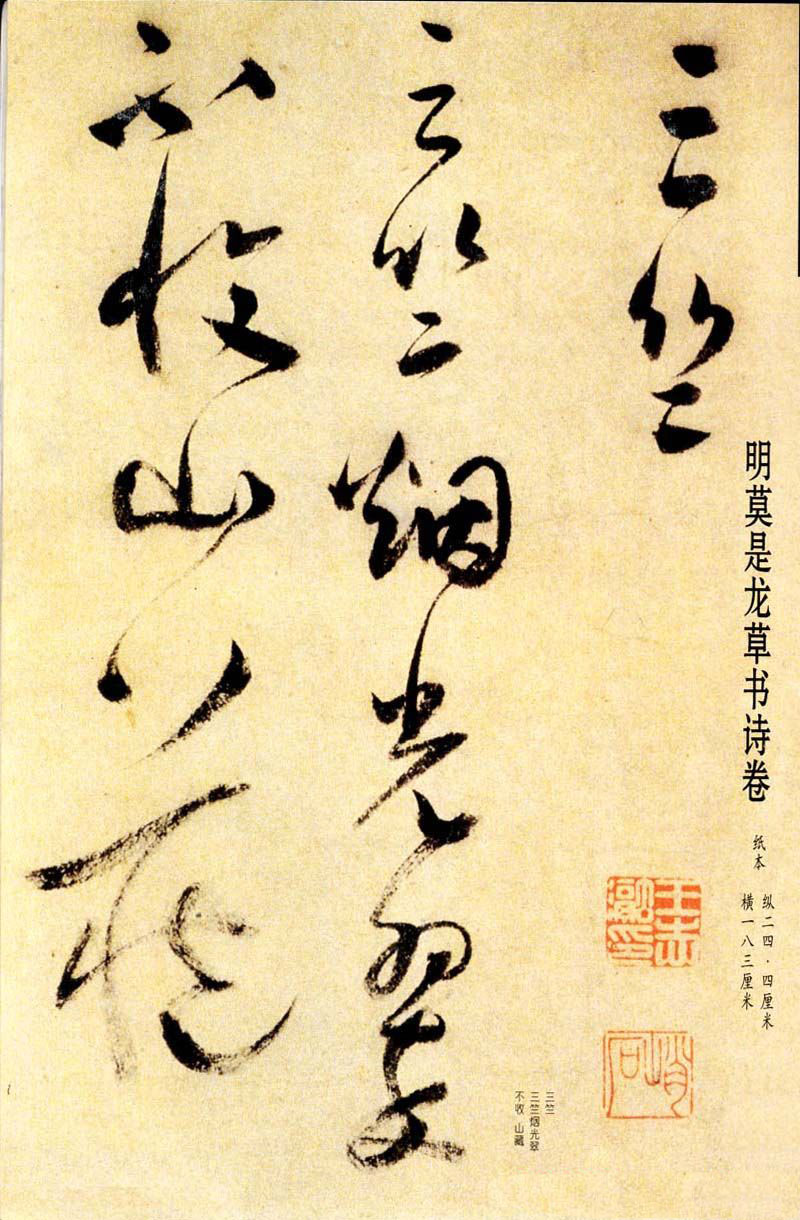 明莫是龙草书诗卷
纸本
纵二四·四厘米
横一八三厘米
三竺
三竺烟光翠
不收山藏
三竺
三竺烟光翠
不收 山藏